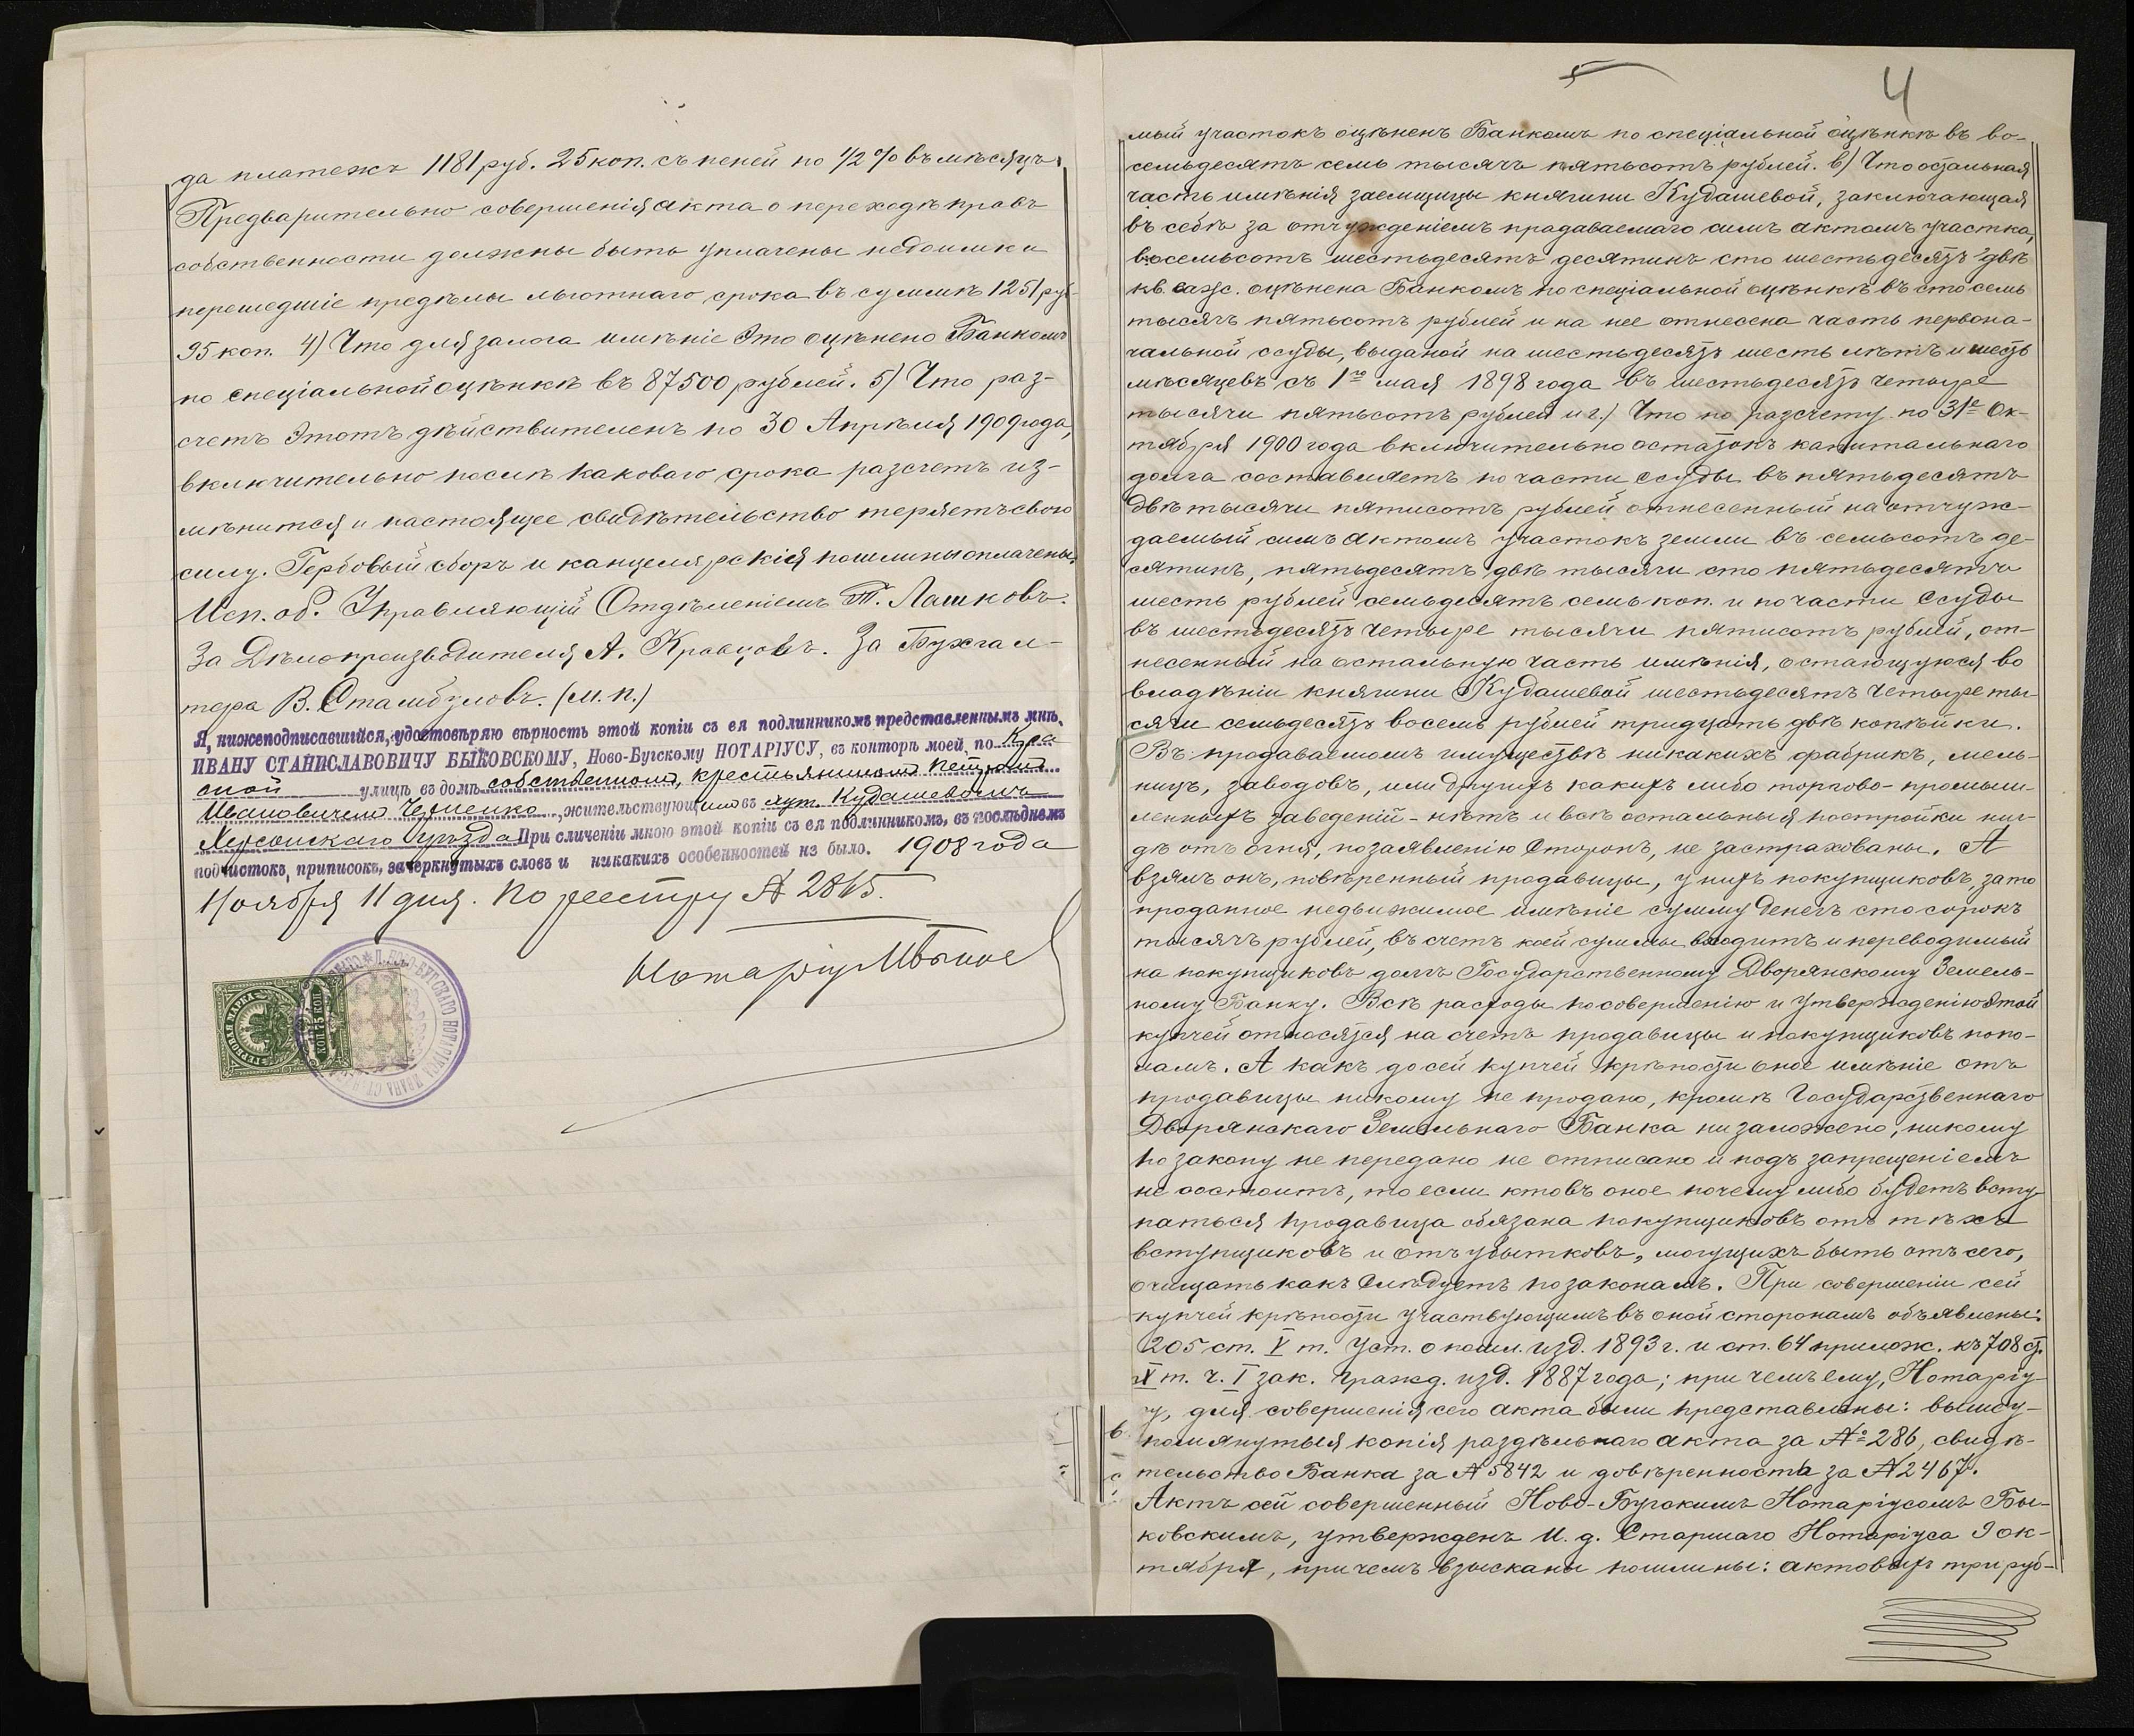 да платежъ 1181 руб. 25 коп. съ пеней по 1/2 % въ мѣсяцъ.
Предварительно совершенія акта о переходѣ правъ
собственности должны быть уплачены недоимки
перешедшіе предѣлы льготнаго срока въ суммѣ 1251 руб.
95 коп. 4) Что для залога имѣніе это оцѣнено Банкомъ
по спеціальной оцѣнкѣ въ 87500 рублей. 5) Что раз-
счетъ этотъ дѣйствителенъ по 30 Апрѣля 1909 года,
включительно послѣ каковаго срока разсчетъ из-
мѣнится и настоящее свидѣтельство теряетъ свою
силу. Гербовый сборъ и канцелярскія пошлины оплачены.
Исп. об. Управляющій Отдѣленіемъ Т. Лашковъ.
За Дѣлопроизводителя А. Кравцовъ. За Бухгал-
тера В. Стамбуловъ. (м. п.)
Я, нижеподписавшійся, удостовѣряю вѣрность этой копіи съ ея подлинникомъ представленнымъ мнѣ,
ИВАНУ СТАНИСЛАВОВИЧУ БЫКОВСКОМУ, Ново-Бугскому НОТАРІУСУ, въ конторѣ моей, по Кра
сной улицѣ въ домѣ собственномъ, крестьяниномъ Петромъ
Ивановичемъ Чепенко, жительствующимъ въ хут. Кудашевомъ
Херсонскаго уѣзда При сличеніи мною этой копіи съ ея подлинникомъ, въ послѣднемъ
подчистокъ, приписокъ, зачеркнутыхъ словъ и никакихъ особенностей не было. 1908 года
Ноября 11 дня. По реестру № 2865.
Нотаріусъ
ГЕРБОВАЯ МАРКА
75 КОП.
НОВО-БУГСКАГО НОТАРІУСА ИВАНА
4
мый участокъ оцѣненъ Банкомъ по спеціальной оцѣнкѣ въ во-
семьдесятъ семь тысячъ пятьсотъ рублей. в) Что остальная
часть имѣнія заемщицы княгини Кудашевой, заключающая
въ себѣ за отчужденіемъ продаваемаго симъ актомъ участка,
восемьсотъ шестьдесятъ десятинъ сто шестьдесятъ двѣ
кв. саж. оцѣнена Банкомъ по спеціальной оцѣнкѣ въ сто семь
тысячъ пятьсотъ рублей и на нее отнесена часть первона-
чальной ссуды, выданой на шестьдесятъ шесть лѣтъ и шесть
мѣсяцевъ съ 1го мая 1898 года въ шестьдесятъ четыре
тысячи пятьсотъ рублей и г.) Что по разсчету по 31е Ок-
тября 1900 года включительно остатокъ капитальнаго
долга составляетъ по части ссуды въ пятьдесятъ
двѣ тысячи пятисотъ рублей отнесенный на отчуж-
даемый симъ актомъ участокъ земли въ семьсотъ де-
сятинъ, пятьдесятъ двѣ тысячи сто пятьдесятъ
шесть рублей семьдесятъ семь коп. и по части ссуды
въ шестьдесятъ четыре тысячи пятисотъ рублей, от-
несенный на остальную часть имѣнія, остающуюся во
владѣніи княгини Кудашевой шестьдесятъ четыре ты-
сячи семьдесятъ восемь рублей тридцать двѣ копѣйки.
Въ продаваемомъ имуществѣ никакихъ фабрикъ, мель-
ницъ, заводовъ, или другихъ какихъ либо торгово-промыш-
ленныхъ заведеній - нѣтъ и всѣ остальныя постройки ниг-
дѣ отъ огня, по заявленію сторонъ, не застрахованы. А
взялъ онъ, повѣренный продавицы, у нихъ покупщиковъ, за то
проданное недвижимое имѣніе сумму денегъ сто сорокъ
тысячъ рублей, въ счетъ коей суммы входитъ и переводимый
на покупщиковъ долгъ Государственному Дворянскому Земель-
ному Банку. Всѣ расходы по совершенію и утвержденію этой
купчей относятся на счетъ продавицы и покупщиковъ попо-
ламъ. А какъ до сей купчей крѣпости оное имѣніе отъ
продавицы никому не продано, кромѣ Государственнаго
Дворянскаго Земельнаго Банка ни заложено, никому
по закону не передано не отписано и подъ запрещеніемъ
не состоитъ, то если кто въ оное почему либо будетъ всту-
паться продавица обязана покупщиковъ отъ тѣхъ
вступщиковъ и отъ убытковъ, могущихъ быть отъ сего,
очищать какъ слѣдуетъ по законамъ. При совершеніи сей
купчей крѣпости участвующимъ въ оной сторонамъ объявлены:
205 ст. V т. Уст. о пошл. изд. 1893 г. и ст. 64 прилож. къ 708 ст.
X т. ч. I зак. гражд. изд. 1887 года; при чемъ ему, Нотаріу-
су, для совершенія сего акта были представлены: вышеу-
помянутыя копія раздѣльнаго акта за № 286, свидѣ-
тельство Банка за № 5842 и довѣренность за № 2467.
Актъ сей совершенный Ново-Бугскимъ Нотаріусомъ Бы-
ковскимъ, утвержденъ И. д. Старшаго Нотаріуса 9 ок-
тября, при чемъ взысканы пошлины: актовыхъ три руб-